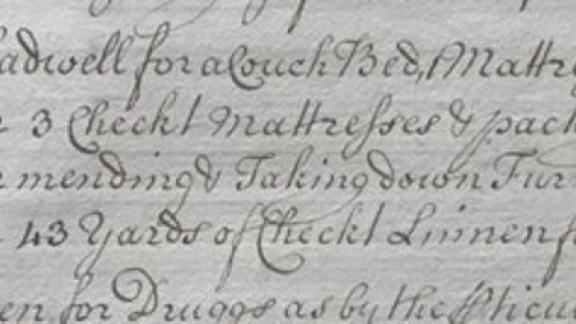 adwell for a Couch Bed, Mattr
3 Checkt Mattresses & pack
mending & Taking down Fur
43 Yards of Checkt Linnen f
en for Druggs as by the Pticu